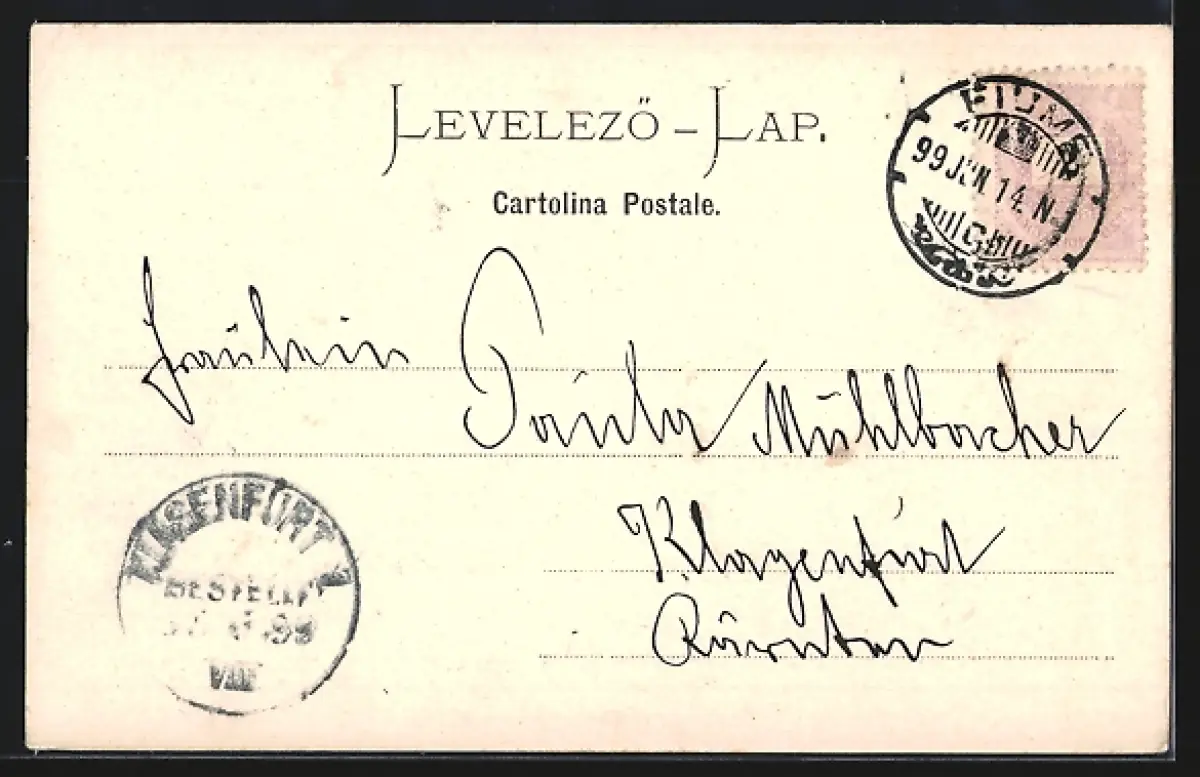 LEVELEZŐ – LAP.
Cartolina Postale.
FIUME
99 JUN. 14. N.
Fräulein Paula Mühlbacher
Klagenfurt
Kärnten
KLAGENFURT
BESTELLT
99
VIII